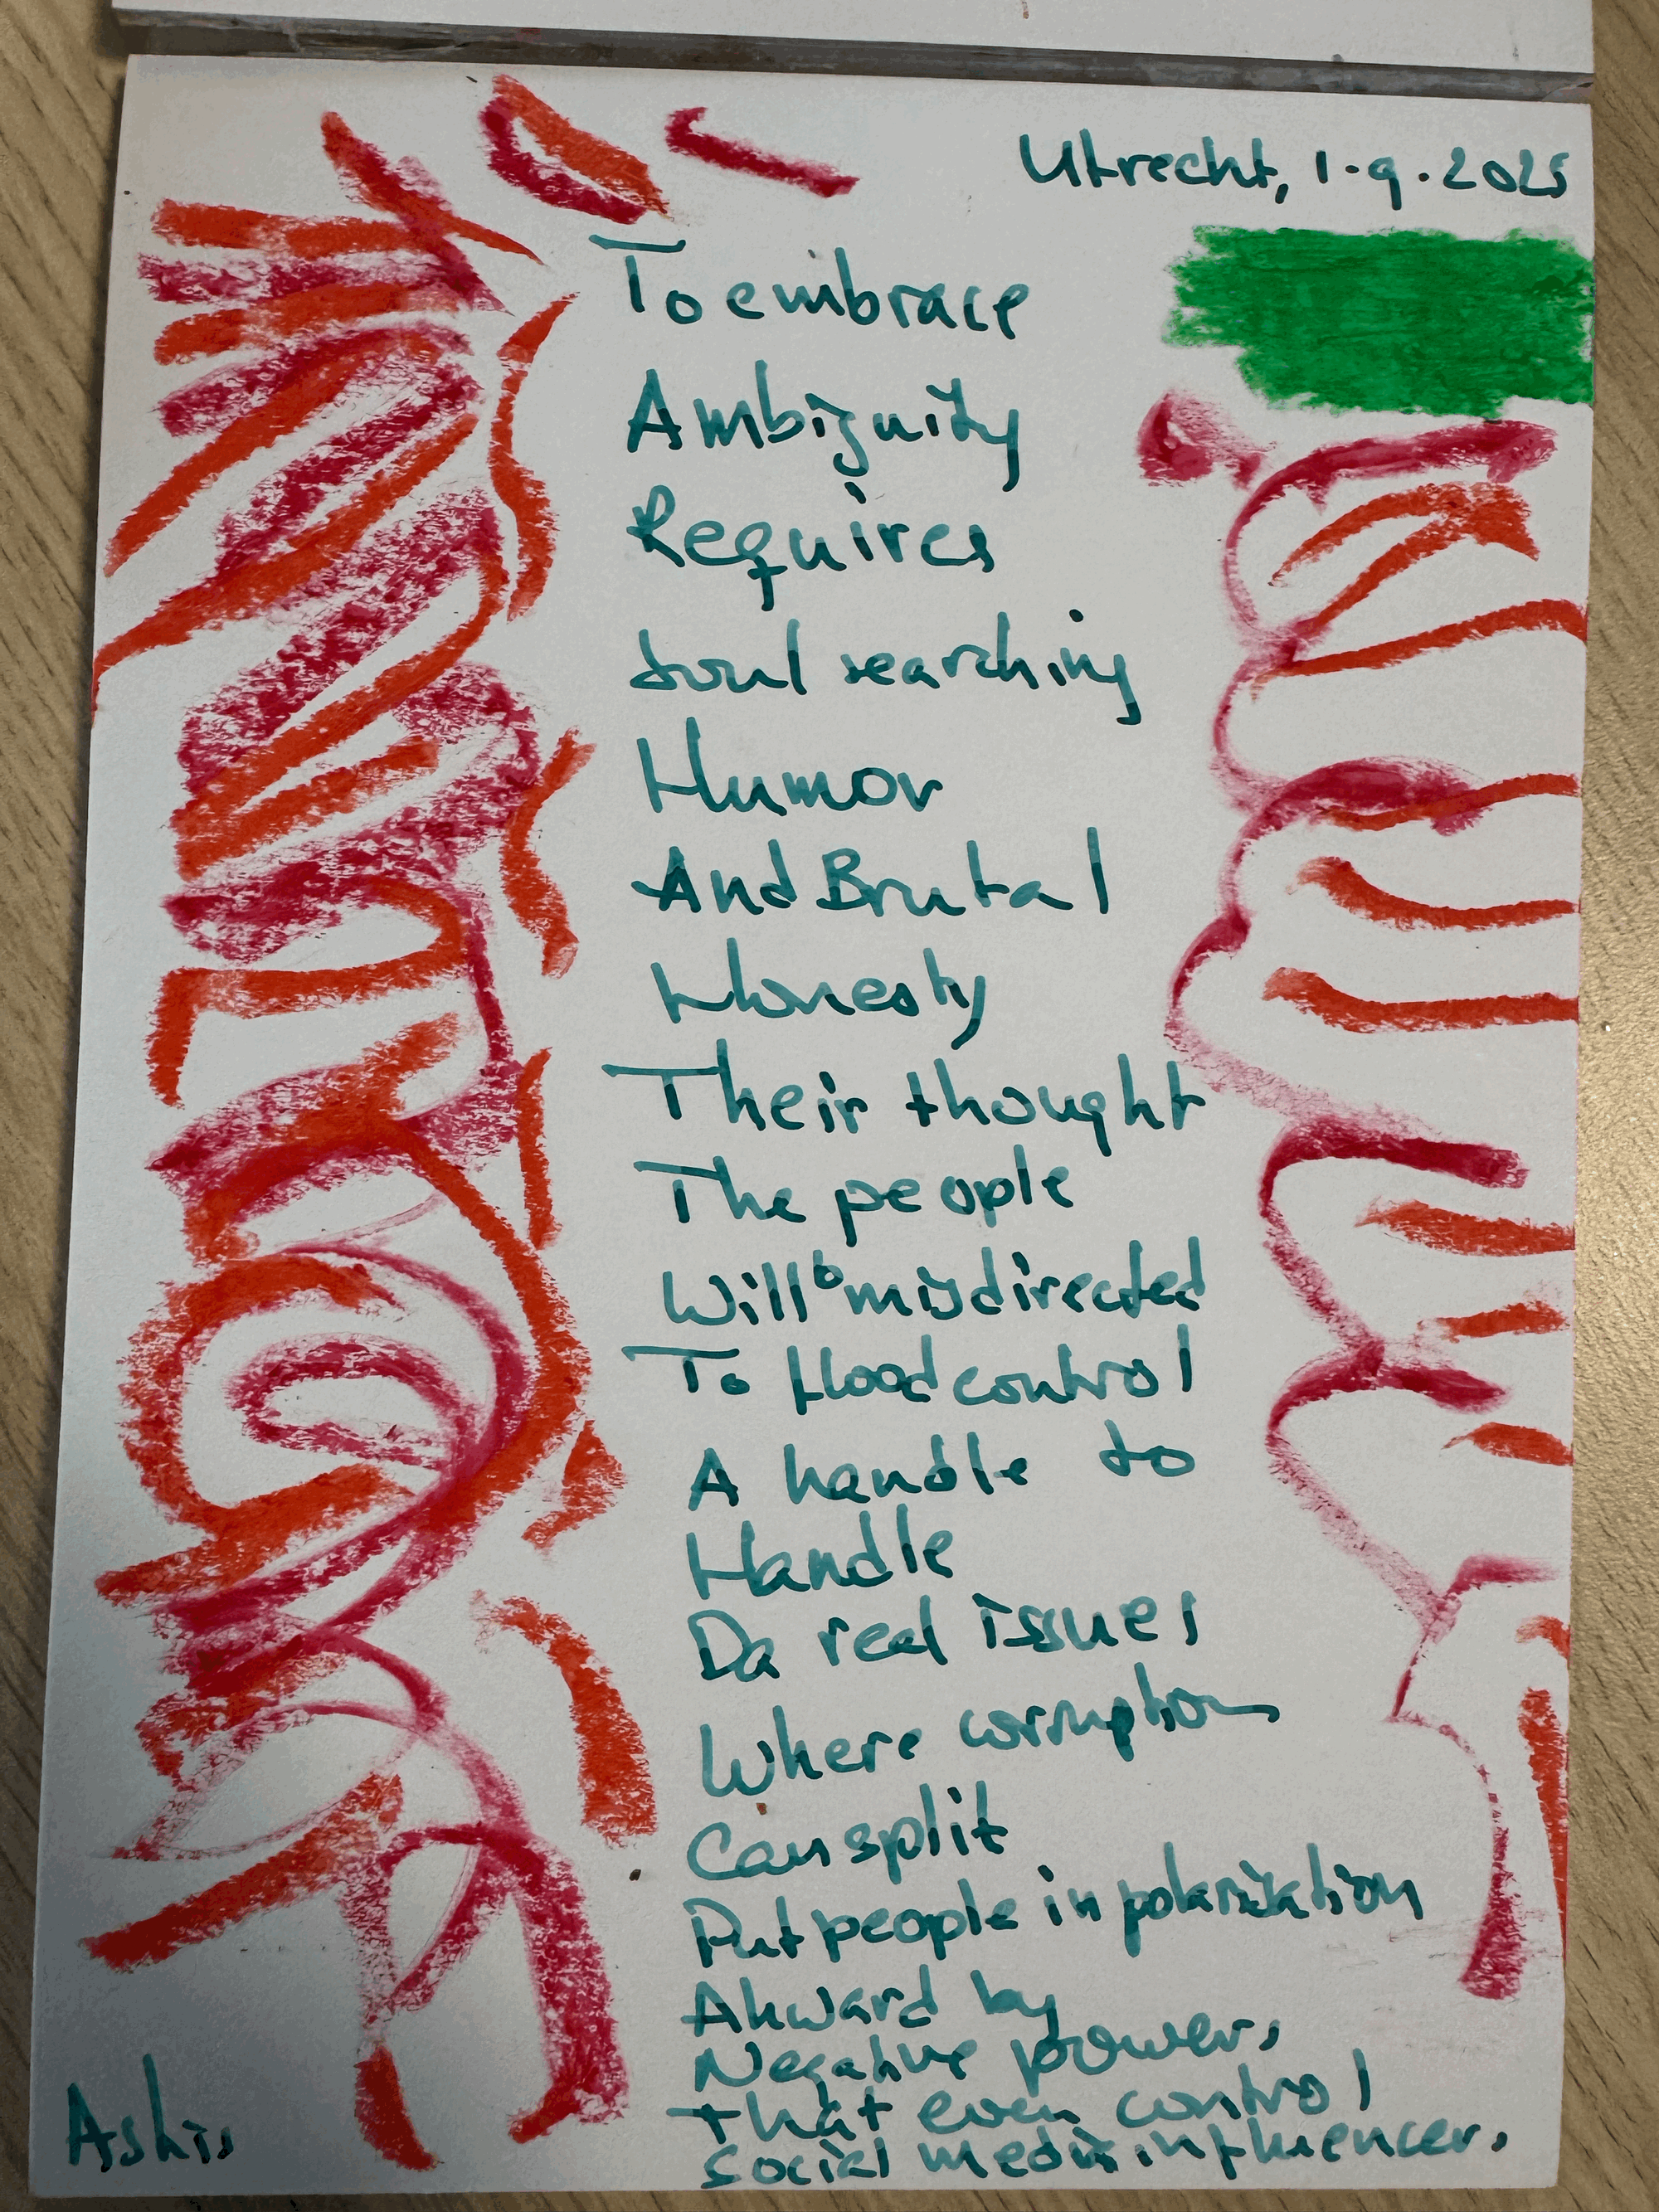 Utrecht, 1.9.2025
To embrace
Ambiguity
Requires
Soul searching
Humor
And Brutal
Honesty
Their thought
The people
Will b misdirected
To flood control
A handle to
Handle
Da real issues
Where corruption
Can split
Put people in polarization
Akward by
Negative powers
that even control
social media influencers
Ashis